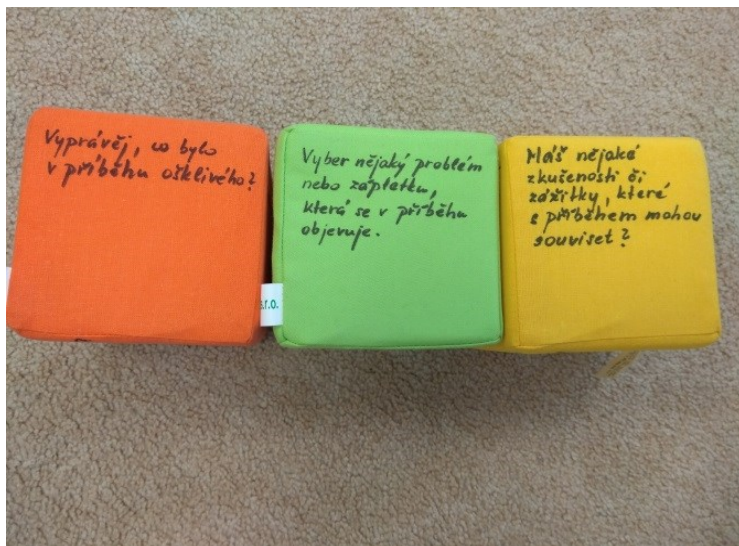 Vyprávěj, co bylo
v příběhu ošklivého?
Vyber nějaký problém
nebo zápletku,
která se v příběhu
objevuje.
s.r.o.
Máš nějaké
zkušenosti či
zážitky, které
s příběhem mohou
souviset?